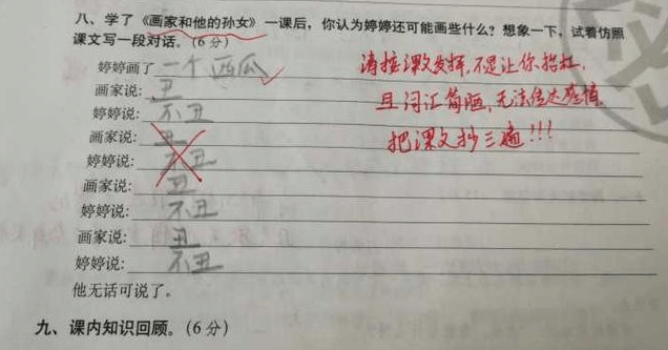 八、学了《画家和他的孙女》一课后，你认为婷婷还可能画些什么？想象一下，试着仿照
课文写一段对话。（6分）
婷婷画了一个西瓜
画家说：丑
婷婷说：不丑
画家说：丑
婷婷说：不丑
画家说：丑
婷婷说：不丑
画家说：丑
婷婷说：不丑
他无话可说了。
九、课内知识回顾。（6分）
请按课文发挥，不是让你抬杠，
且词汇简陋，无法传达感情，
把课文抄三遍!!!